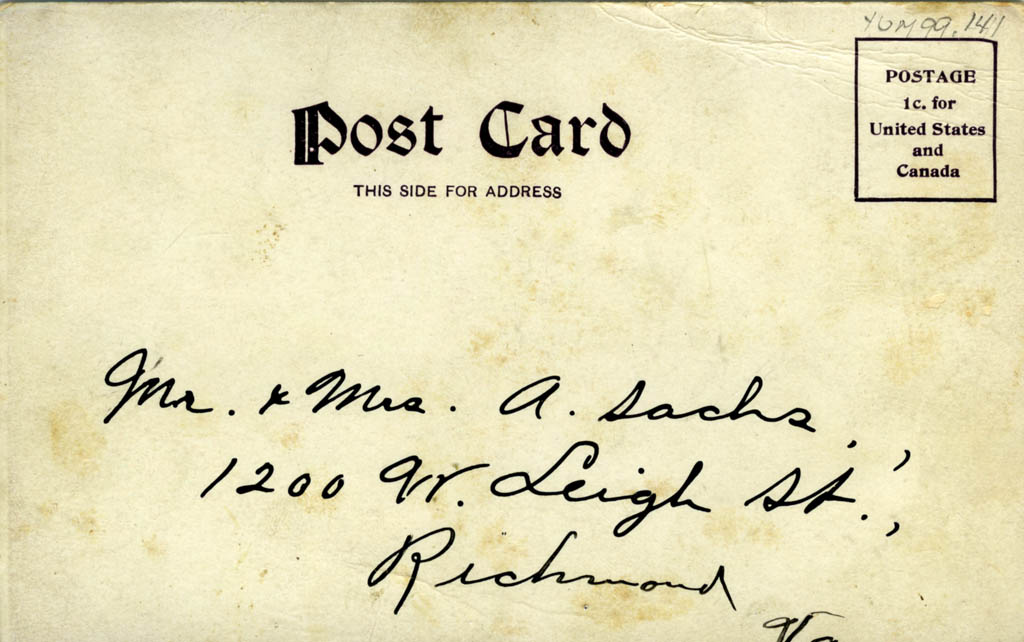 YUM99.141
POSTAGE
1c. for
United States
and
Canada
Post Card
THIS SIDE FOR ADDRESS
Mr. & Mrs. A. Sachs,
1200 W. Leigh St.,
Richmond
Va